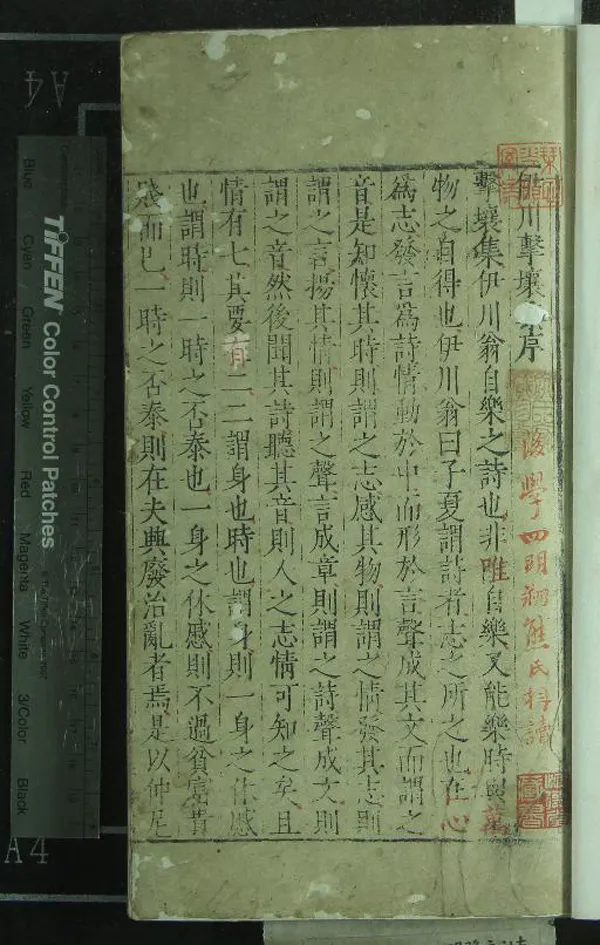 伊川擊壤序
後學四明熊氏科讀
擊壤集伊川翁自樂之詩也非唯自樂又能樂時與萬
物之自得也伊川翁曰子夏謂詩者志之所之也在心
為志發言為詩情動於中而形於言聲成其文而謂之
音是知懷其時則謂之志感其物則謂之情發其志則
謂之言揚其情則謂之聲言成章則謂之詩聲成文則
謂之音然後聞其詩聽其音則人之志情可知之矣且
情有七其要有二二謂身也時也謂身則一身之休慼
也謂時則一時之否泰也一身之休慼則不過貧富貴
賤而已一時之否泰則在夫興廢治亂者焉是以仲尼
A4
TIFFEN Color Control Patches
Blue
Cyan
Green
Yellow
Red
Magenta
White
3/Color
Black
A4